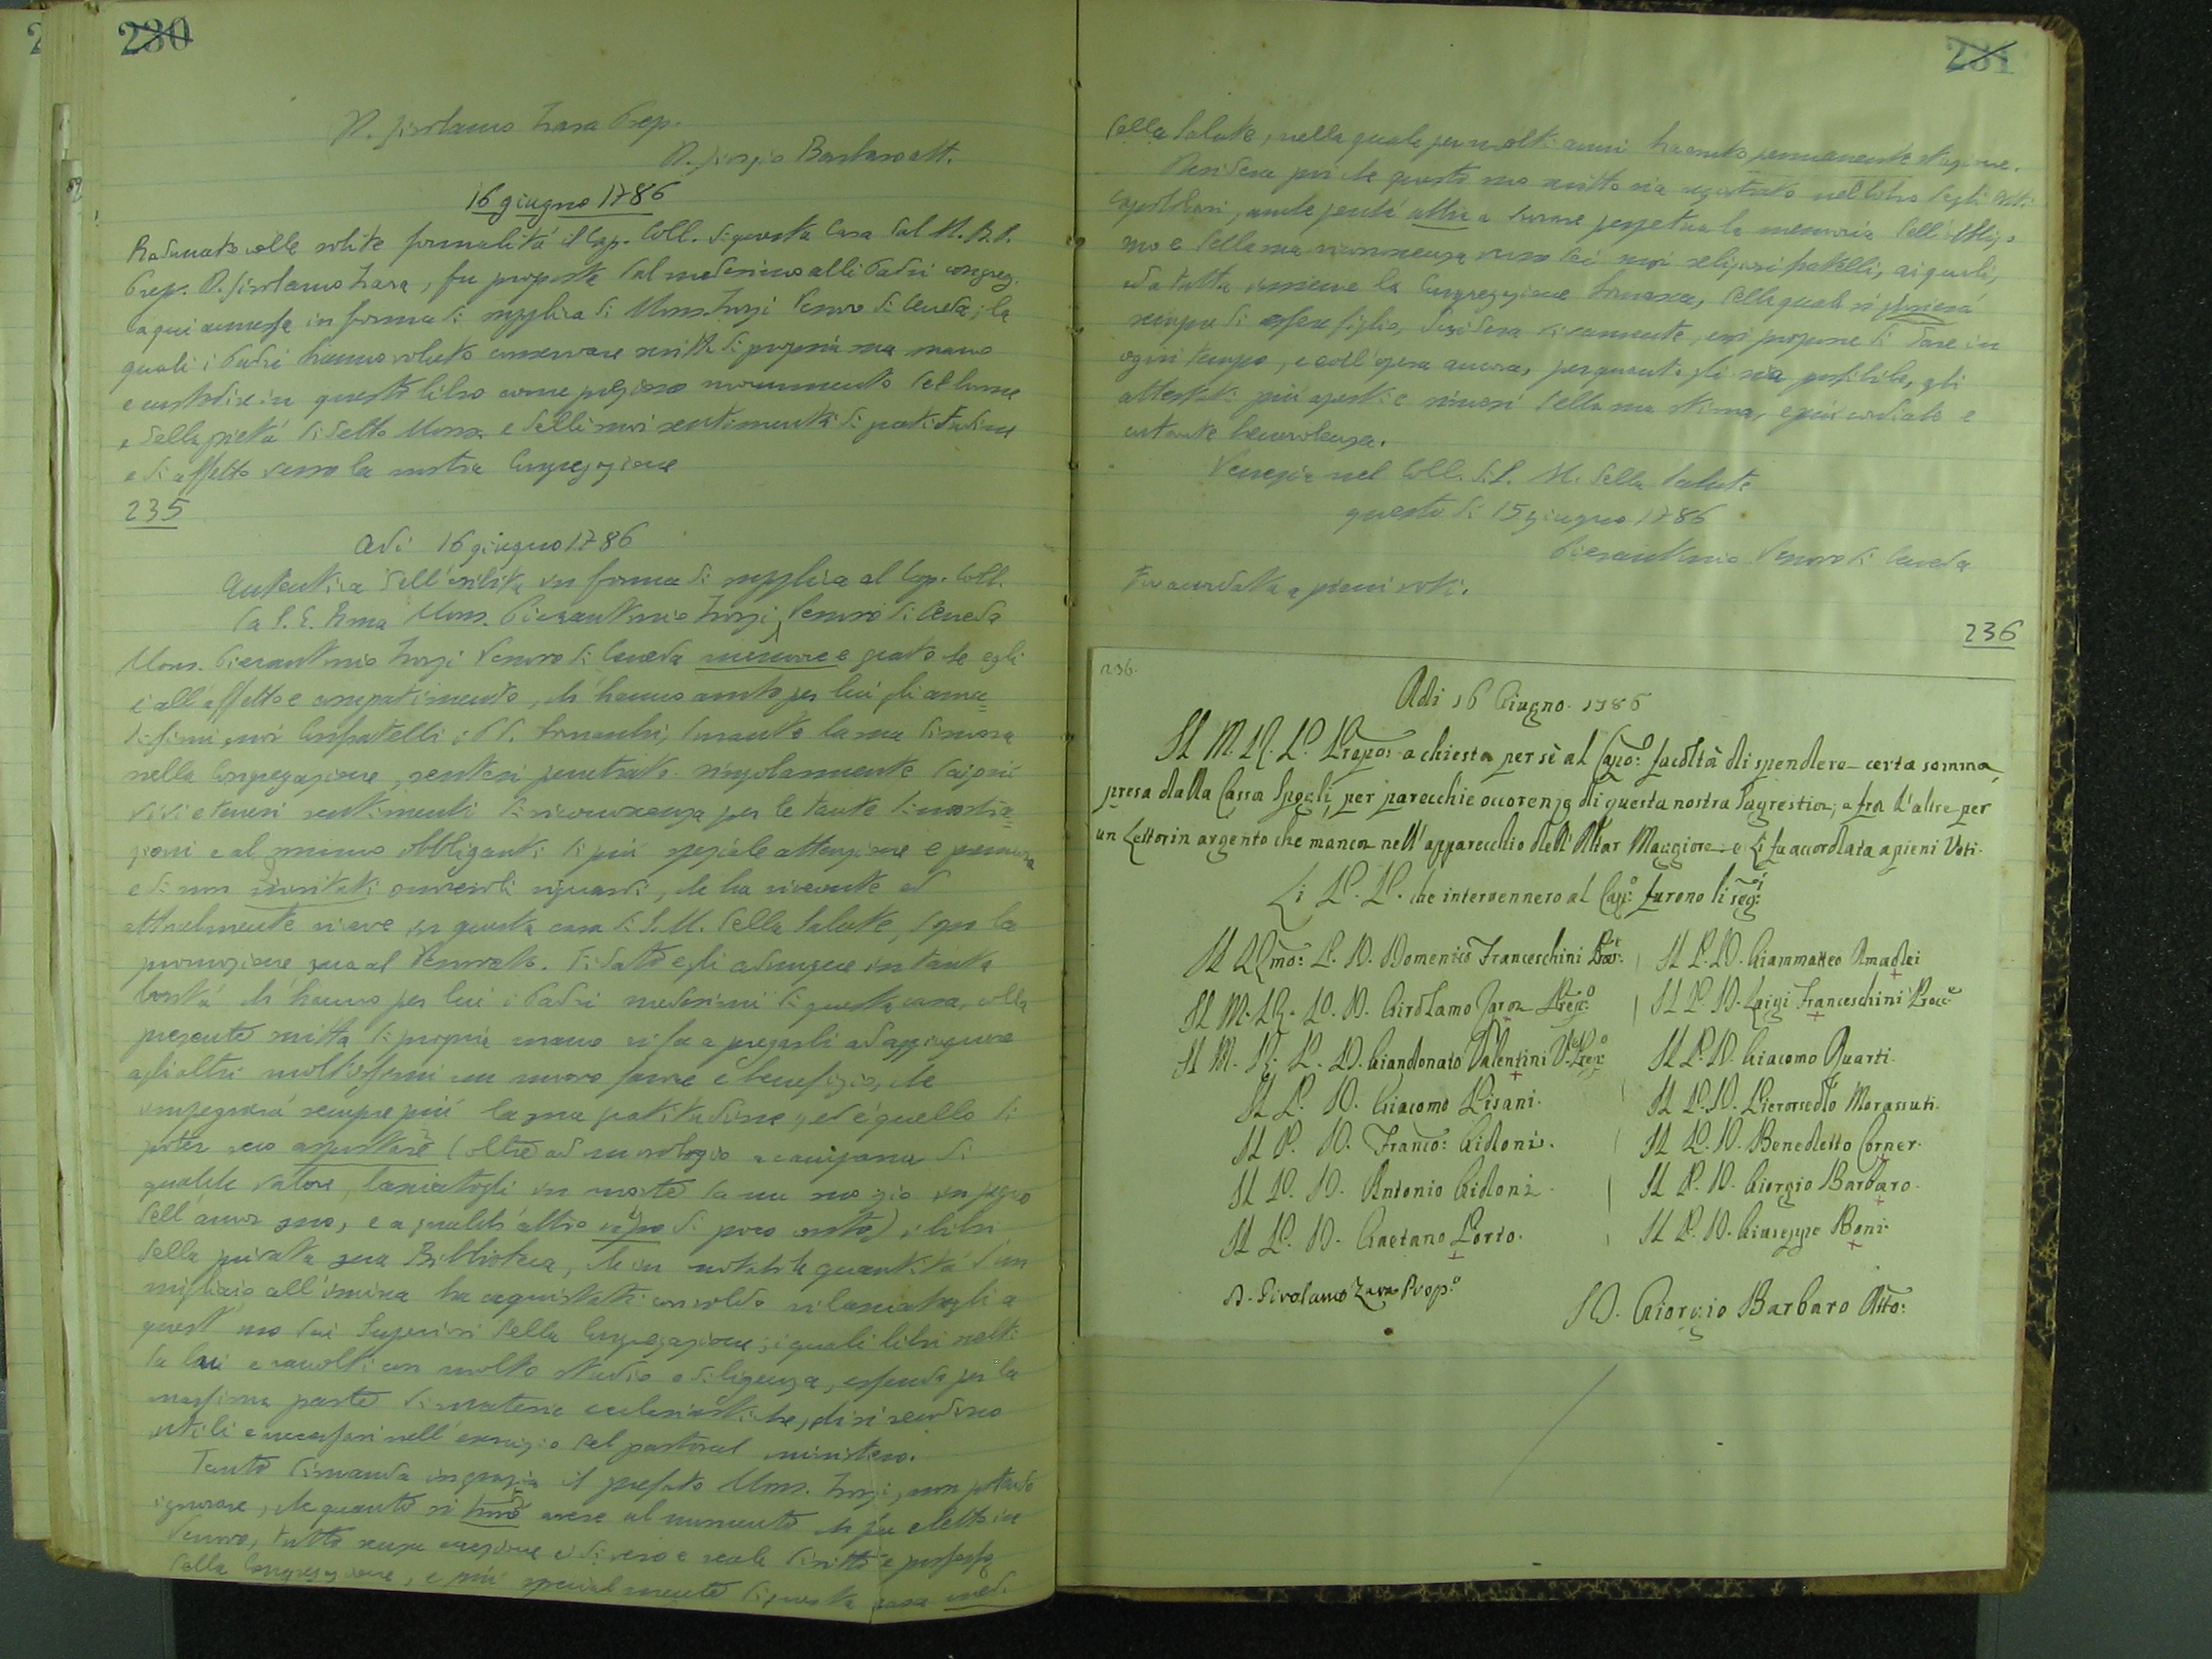 230
D. Girolamo Zara Prep.
D. Giorgio Barbaro att.
16 giugno 1786
Radunato colle solite formalità il Cap. Coll. di questa Casa dal M. R. P.
Prep. D. Girolamo Zara, fu proposta dal medesimo alli Padri congreg.
la qui annessa in forma di supplica di Mons. Zorzi Vescovo di Ceneda; la
quale i Padri hanno voluto conservare scritta di propria sua mano
e custodire in questo libro come prezioso monumento del lume
e della pietà di detto Mons. e delli suoi sentimenti di gratitudine
e di affetto verso la nostra Congregazione
235
Adi 16 giugno 1786
Autentica dell'esibita in forma di supplica al Cap. Coll.
da S. E. Rma Mons. Pierantonio Zorzi, Vescovo di Ceneda
Mons. Pierantonio Zorzi Vescovo di Ceneda memore e grato che egli
è all'affetto e compatimento, ch'hanno avuto per lui gli ama=
tissimi suoi Confratelli i PP. Somaschi, durante la sua dimora
nella Congregazione, sentesi penetrato singolarmente dai più
vivi e teneri sentimenti di riconoscenza per le tante dimostra=
zioni e al sommo obbliganti di più speziale attenzione e premura
e di non meritati onorevoli riguardi, che ha ricevute ed
attualmente riceve in questa casa di S. M. della Salute, dopo la
promozione sua al Vescovato. Fidato egli adunque in tanta
bontà ch'hanno per lui i Padri medesimi di questa casa, colla
presente scritta di propria mano si fa a pregarli ad aggiugnere
agli altri moltissimi un nuovo favore e benefizio, che
impegnerà sempre più la sua gratitudine, ed è quello di
poter seco asportare (oltre ad un orologio a campana di
qualche valore, lasciatogli in morte da un suo zio in pegno
dell'amor suo, e a qualch'altro capo di poco conto) i libri
della privata sua Biblioteca, che in notabile quantità d'un
migliaio all'incirca ha acquistati con soldo rilasciatogli a
quest'uso dai Superiori della Congregazione; i quali libri scelti
da lui e raccolti con molto studio e diligenza, essendo per la
massima parte di materie ecclesiastiche, gli si rendono
utili e necessari nell'esercizio del pastoral ministero.
Tanto dimanda in grazia il prefato Mons. Zorzi, non potendo
ignorare, che quanto si trovò avere al momento ch'fu eletto in
Vescovo, tutto senza eccezione è di vero e reale diritto e possesso
della Congregazione, e più specialmente di questa casa med.
231
della Salute, nella quale per molti anni ha avuto permanente stazione.
Desidera poi che questo suo scritto sia registrato nel libro degli Atti
Capitolari, anche perché abbia a durare perpetua la memoria dell'obbligo
suo e della sua riconoscenza verso dei suoi religiosi fratelli, ai quali,
ed a tutta insieme la Congregazione Somasca, della quale si glorierà
sempre di essere figlio, desidera vivamente, e si propone di dare in
ogni tempo, e coll'opera ancora, per quanto gli sia possibile, gli
attestati più aperti e sinceri della sua stima, e più cordiale e
costante benevolenza.
Venezia nel Coll. di S. M. della Salute
questo dì 15 giugno 1786
Pierantonio Vescovo di Ceneda
Fu accordata a pieni voti.
236
236.
Adi 16 Giugno. 1786
Il M. R. P. Prepos: a chiesta per sè al Capo: facoltà di spendere certa somma
presa dalla Cassa Spogli, per parecchie occorenze di questa nostra Sagrestia; e fra l'altre per
un Lettorin argento che manca nell'apparecchio dell'Altar Maggiore e gli fu accordata a pieni Voti.
Li P. P. che intervennero al Cap:o furono li seg:ti
Il Rmo: P. D. Domenico Franceschini Pro.
Il P. D. Giammatteo Amadei
Il M. R. P. D. Girolamo Zara Prep:o
Il P. D. Luigi Franceschini Proc:
Il M. R. P. D. Giandonato Valentini V. Prep:o
Il P. D. Giacomo Quarti.
Il P. D. Giacomo Pisani.
Il P. D. Pieroredlo Morassuti.
Il P. D. Franco: Gidoni.
Il P. D. Benedetto Corner.
Il P. D. Antonio Gidoni.
Il P. D. Giorgio Barbaro.
Il P. D. Gaetano Porto.
Il P. D. Giuseppe Boni.
D. Girolamo Zara Prop.o
D. Giorgio Barbaro Atto: